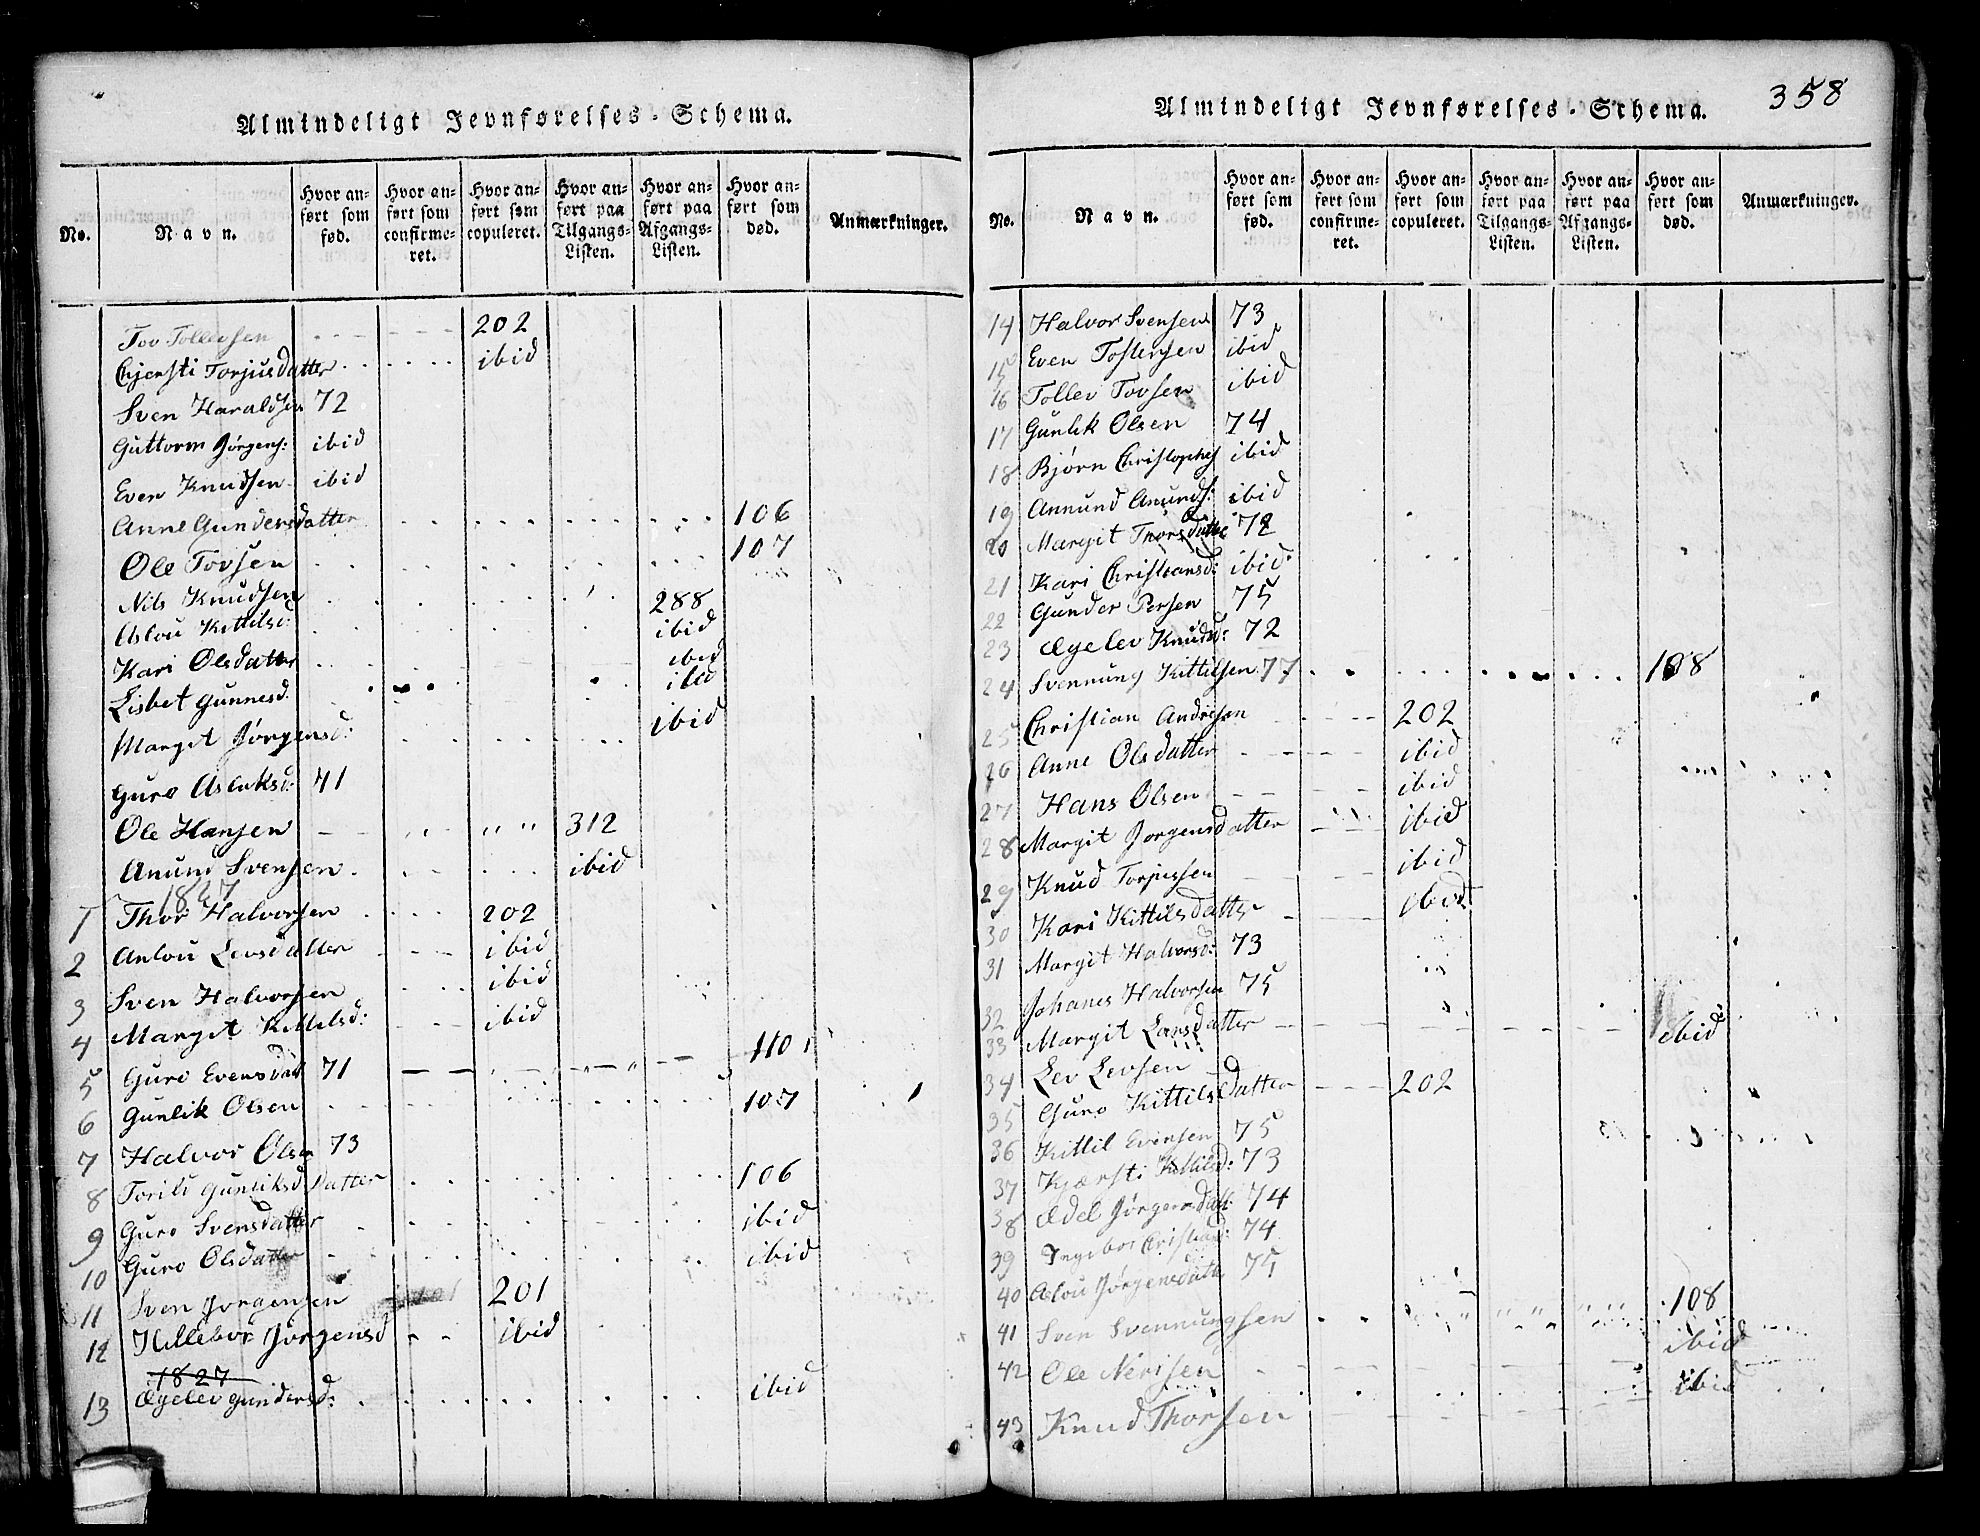 Almindeligt Jevnførelses-Schema.
No. Navn. Hvor anført som fød. Hvor anført som confirmeret. Hvor anført som copuleret. Hvor anført paa Tilgangs-Listen. Hvor anført paa Afgangs-Listen. Hvor anført som død. Anmærkninger.
Tov Tollevsen 202
Chjersti Torjusdatter ibid
Sven Haraldsen 72
Guttorm Jørgens: ibid
Even Knudsen ibid
Anne Gundersdatter 106
Ole Tovsen 107
Nils Knudsen 288
Aslou Kittilsd: ibid
Kari Olsdatter ibid
Lisbet Gunnesd. ibid
Margit Jørgensd: ibid
Guro Aslaksd: 41
Ole Hansen 312
Anund Svensen ibid
1827
1 Thor Halvorsen 202
2 Anlou Levsdatter ibid
3 Sven Halvorsen ibid
4 Margit Kittilsd: ibid
5 Guro Evensdatt 71 110
6 Gunlik Olsen 107
7 Halvor Olsen 73
8 Torild Gunliksd Datter 106
9 Guro Svensdatter ibid
10 Guro Olsdatter ibid
11 Sven Jørgensen 201
12 Hillebor Jørgensd ibid
1827
13 Ægelev Gundersd: ibid
358
Almindeligt Jevnførelses-Schema.
No. Navn. Hvor anført som fød. Hvor anført som confirmeret. Hvor anført som copuleret. Hvor anført paa Tilgangs-Listen. Hvor anført paa Afgangs-Listen. Hvor anført som død. Anmærkninger.
14 Halvor Svensen 73
15 Even Tostensen ibid
16 Tollev Tovsen ibid
17 Gunlik Olsen 74
18 Bjørn Christophs ibid
19 Annund Anunds: ibid
20 Margit Thorsdatte 72
21 Kari Christiansd: ibid
22 Gunder Persen 75
23 Ægelev Knudsd: 72
24 Svennung Kittilsen 77 108
25 Christian Andresen 202
26 Anne Olsdatter ibid
27 Hans Olsen ibid
28 Margit Jørgensdatter ibid
29 Knud Torjussen ibid
30 Kari Kittilsdatter ibid
31 Margit Halvorsd: 73
32 Johanes Halvorsen 75
33 Margit Larsdatter ibid
34 Lev Levsen
35 Guro Kittilsdatter 202
36 Kittil Evensen 75
37 Kjærsti Kittilsd: 73
38 Ædel Jørgensdatt: 74
39 Ingebor Christiansd: 74
40 Aslou Jørgensdatte 75
41 Sven Svennungsen 108
42 Ole Nerisen ibid
43 Knud Thorsen ibid